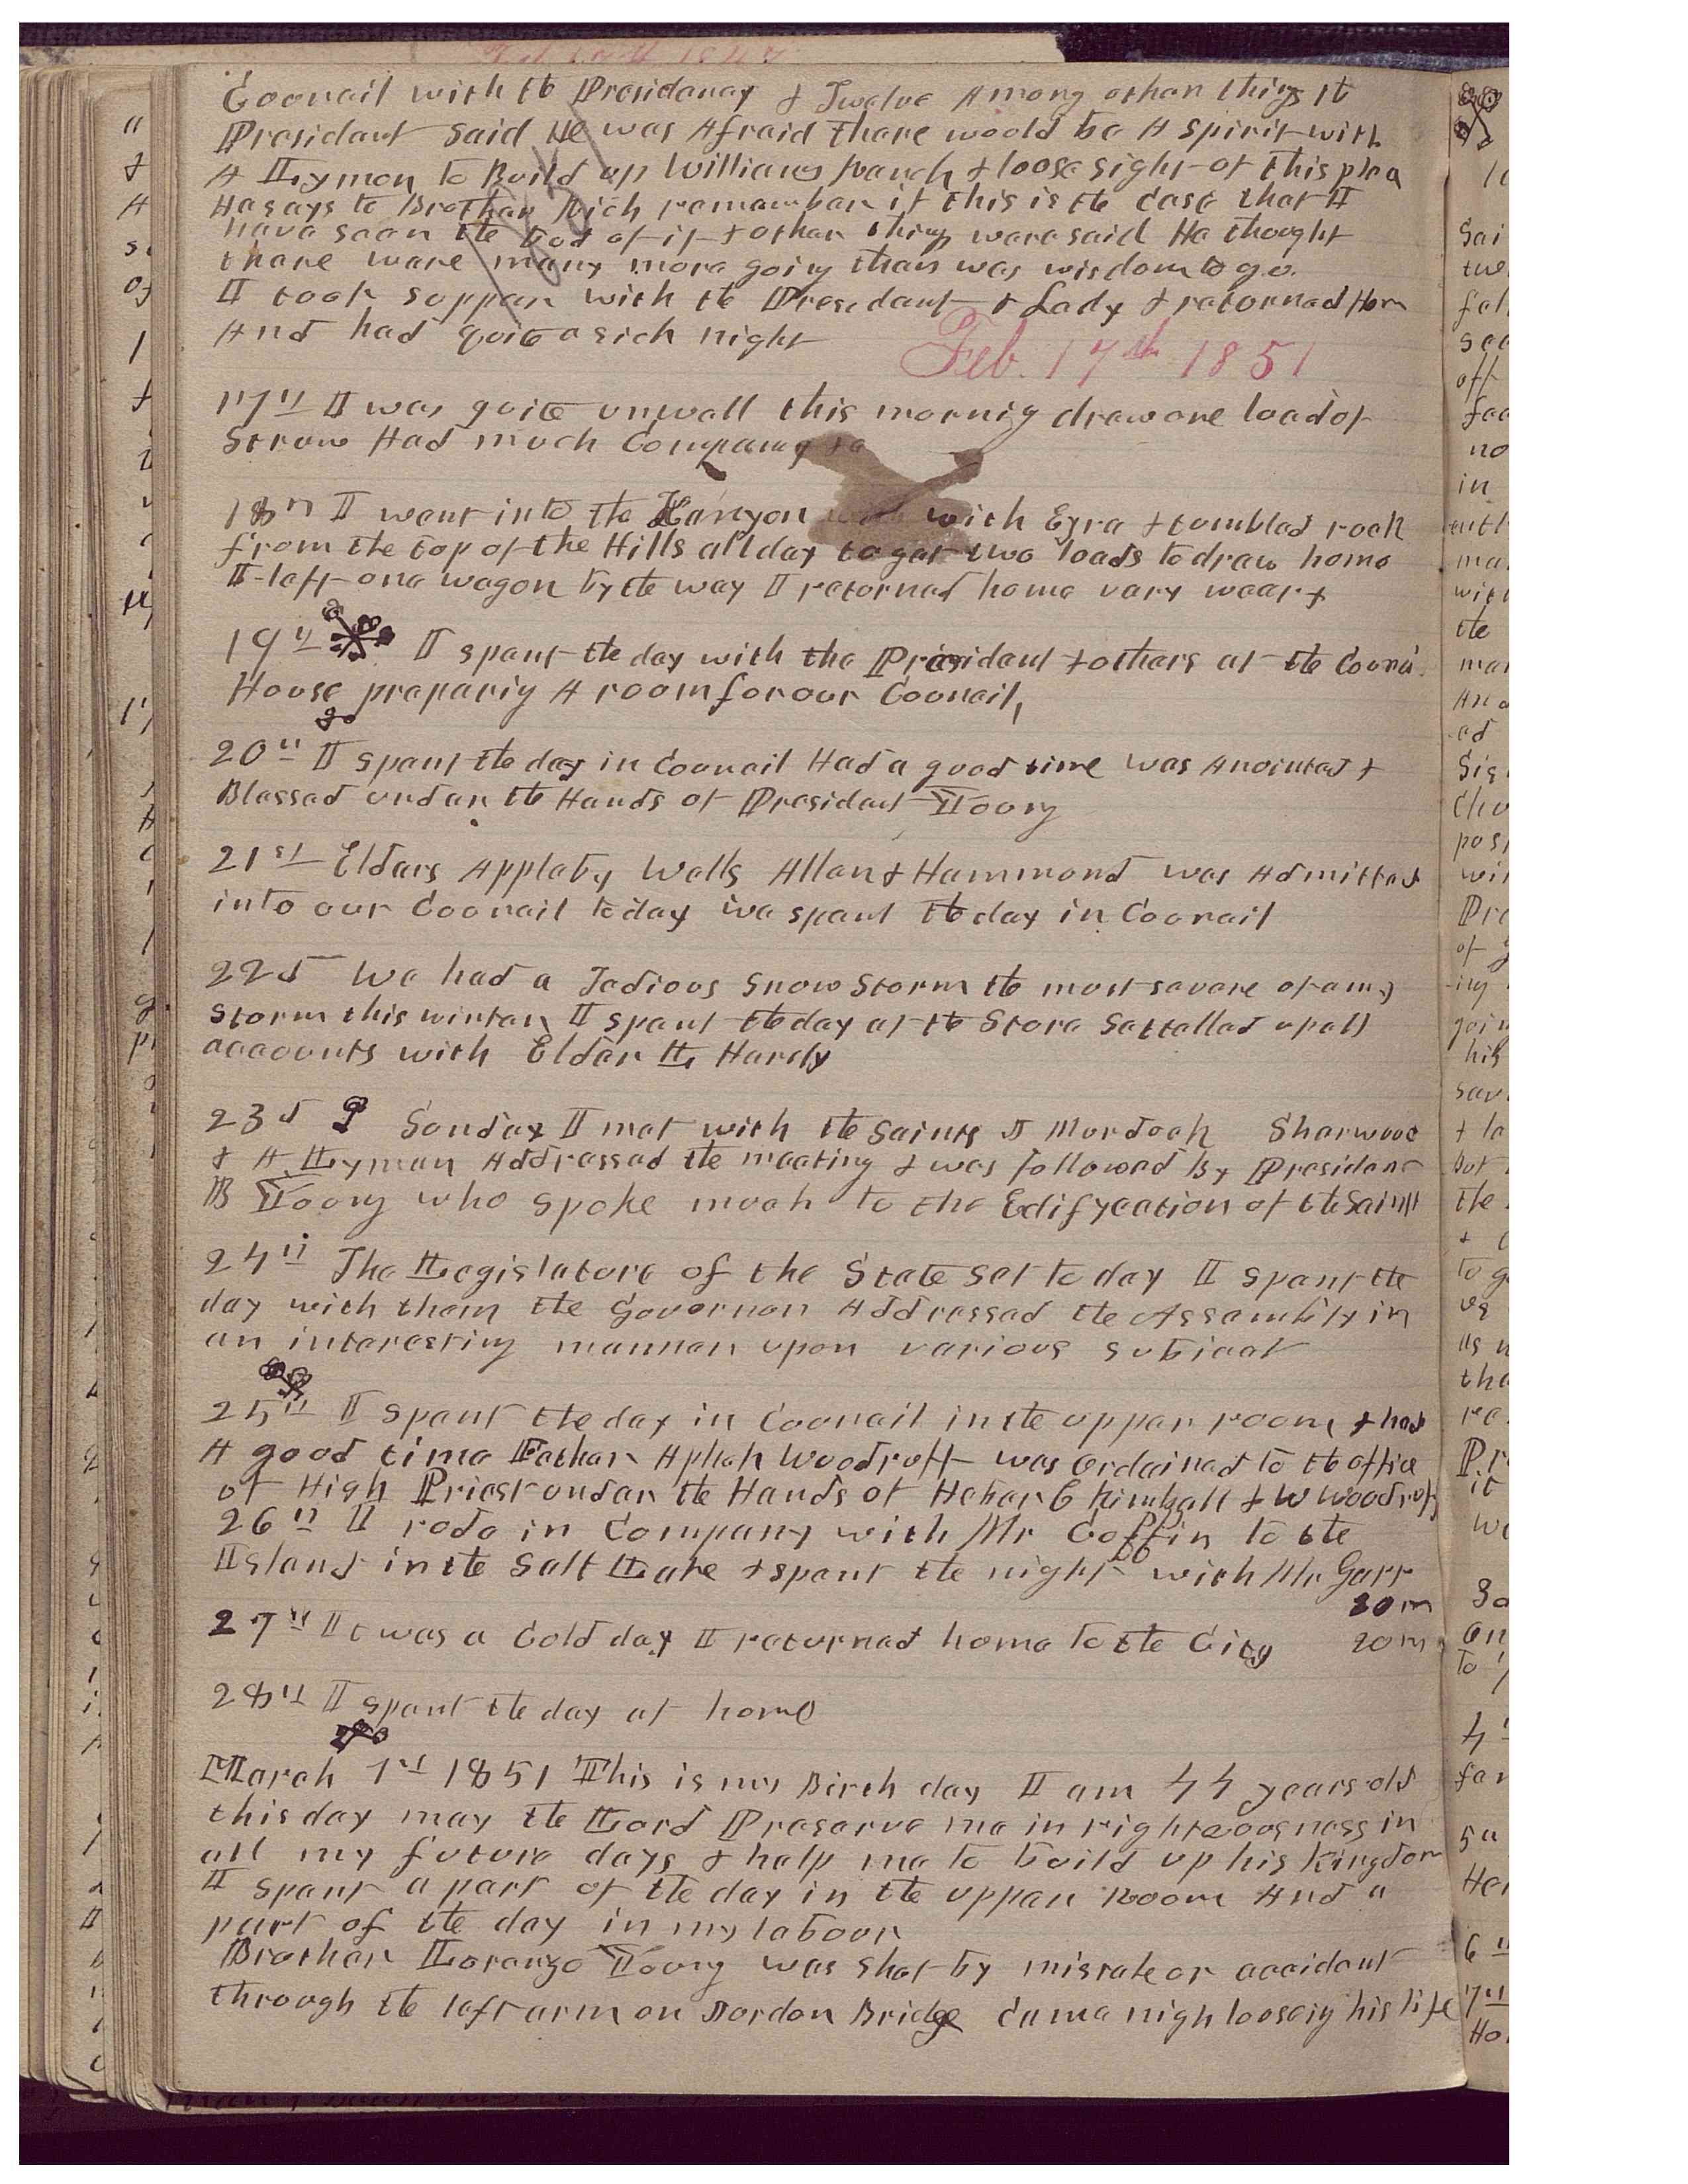 Council with the Presidency & Twelve Among other things the
President said He was Afraid there would be A spirit with
A Lyman to Build up Williams Ranch & loose sight of this place
He says to Brother Rich remember if this is the case that I
have seen the End of it & other things were said He thought
there were many more going than was wisdom to go.
I took supper with the President & Lady & returned Home
And had quite a sick night
Feb. 17th 1851
17th I was quite unwell this morning drew one load of
Straw Had much Company &c
18th I went into the Kanyon with Ezra & tumbled rock
from the top of the Hills all day to get two loads to draw home
I left one wagon by the way I returned home very weary
19th I spent the day with the President & others at the Council
House prepariig A room for our Council,
20th I spent the day in Council Had a good time was Anointed &
Blessed under the Hands of President Young
21st Elders Appleby Wells Allen & Hammond was Admitted
into our Council to day we spent the day in Council
22d We had a Tedious Snow Storm the most severe of any
Storm this winter I spent the day at the Store Settelled up all
accounts with Elder L Hardy
23d Sunday I met with the Saints J Murdock Sherwood
& A. Lyman Addressed the meeting & was followed By President
B Young who spoke much to the Edifycation of the Saints
24th The Legislature of the State set to day I spent the
day with them the Governor Addressed the Assembly in
an interesting manner upon various subject
25th I spent the day in Council in the upper room & had
A good time Father Aphek Woodruff was ordained to the office
of High Priest under the Hands of Heber C Kimball & W Woodruff
26th I rode in Company with Mr Goffin to the
Island in the Salt Lake & spent the night with Mr Garr
20 m
27th It was a Cold day I returned home to the City 20 m
28th I spent the day at home
March 1st 1851 This is my Birth day I am 44 years old
this day may the Lord Preserve me in righteousness in
all my future days & help me to build up his kingdom
I spent a part of the day in the upper Room And a
part of the day in my labour
Brother Lorenzo Young was shot by mistake or accident
through the left arm on Jordon Bridge Came nigh looseig his life